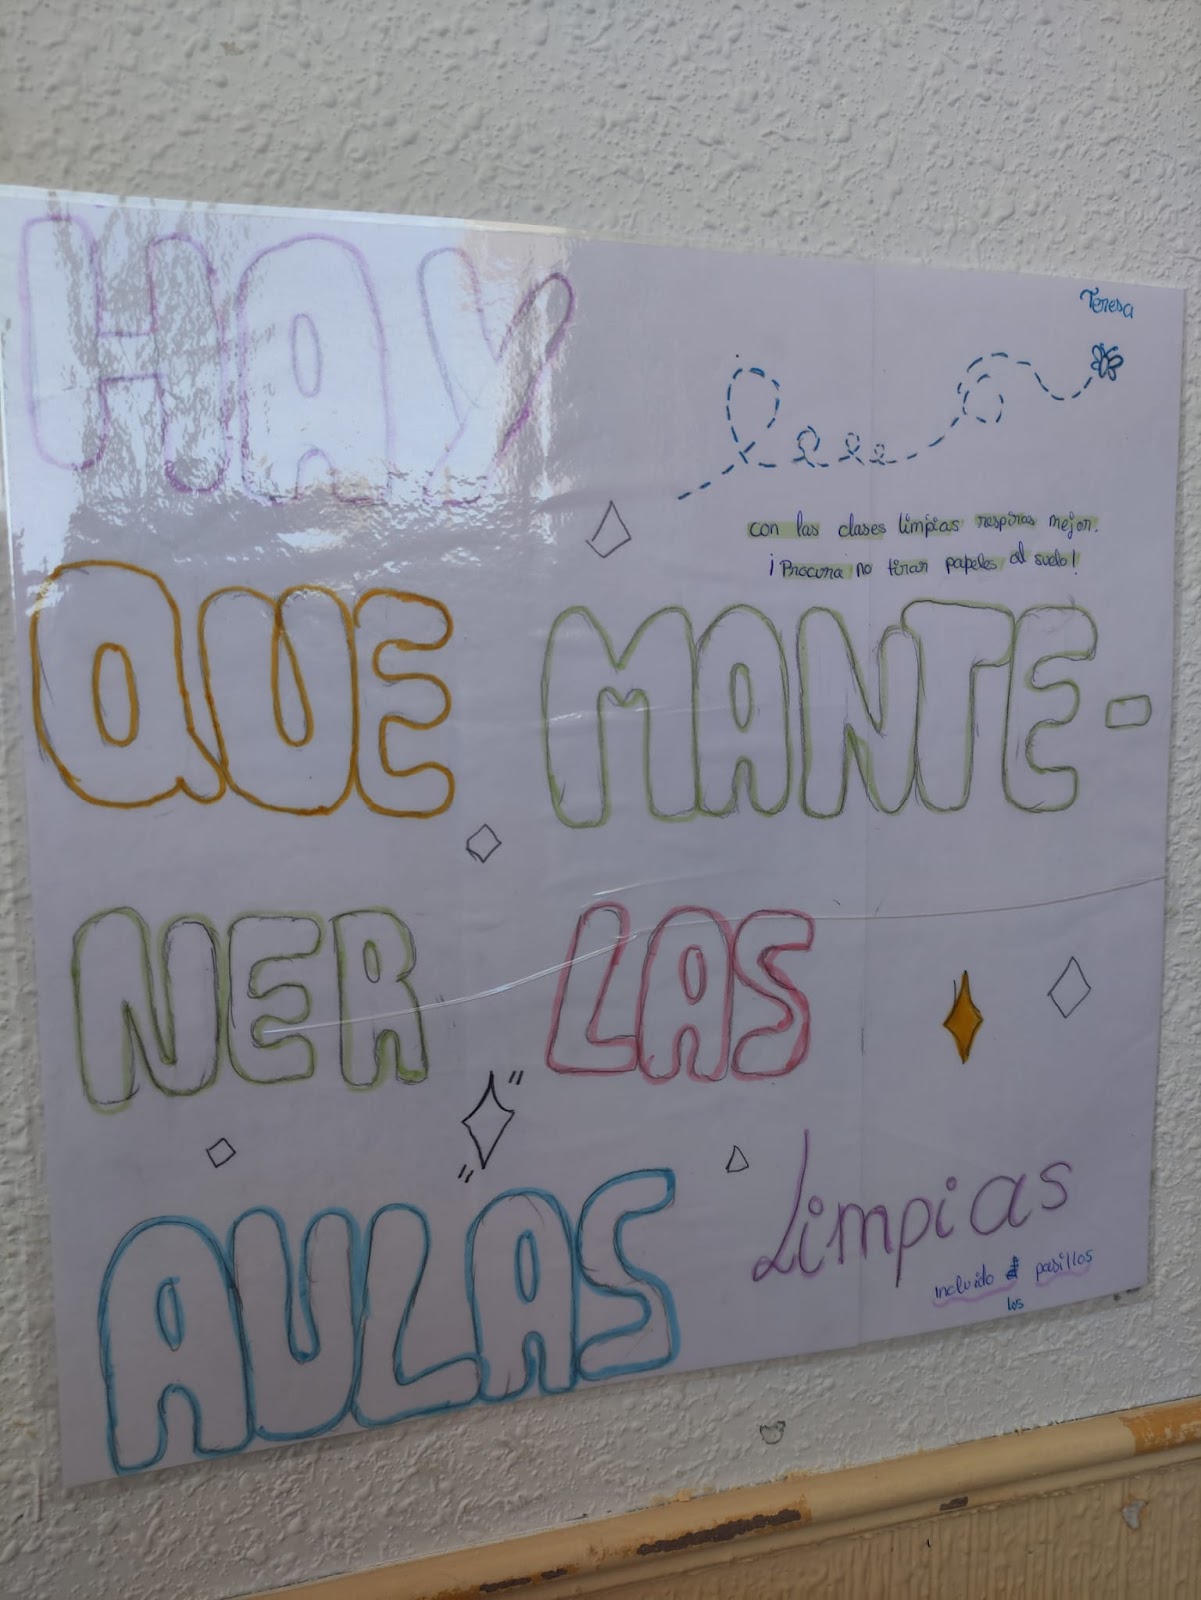 HAY
Teresa
con las clases limpias respiras mejor.
¡Procura no tirar papeles al suelo!
QUE MANTE-
NER LAS
AULAS Limpias
incluido los pasillos